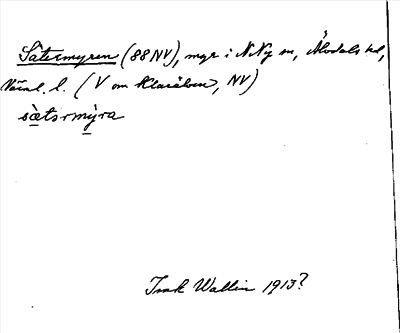 Sätermyren (88NV), myr i N. Ny sn, Älvdals hd,
Värml. l. (V om Klarälven, NV)
sä̀tsrmýra
Isak Wallin 1913?